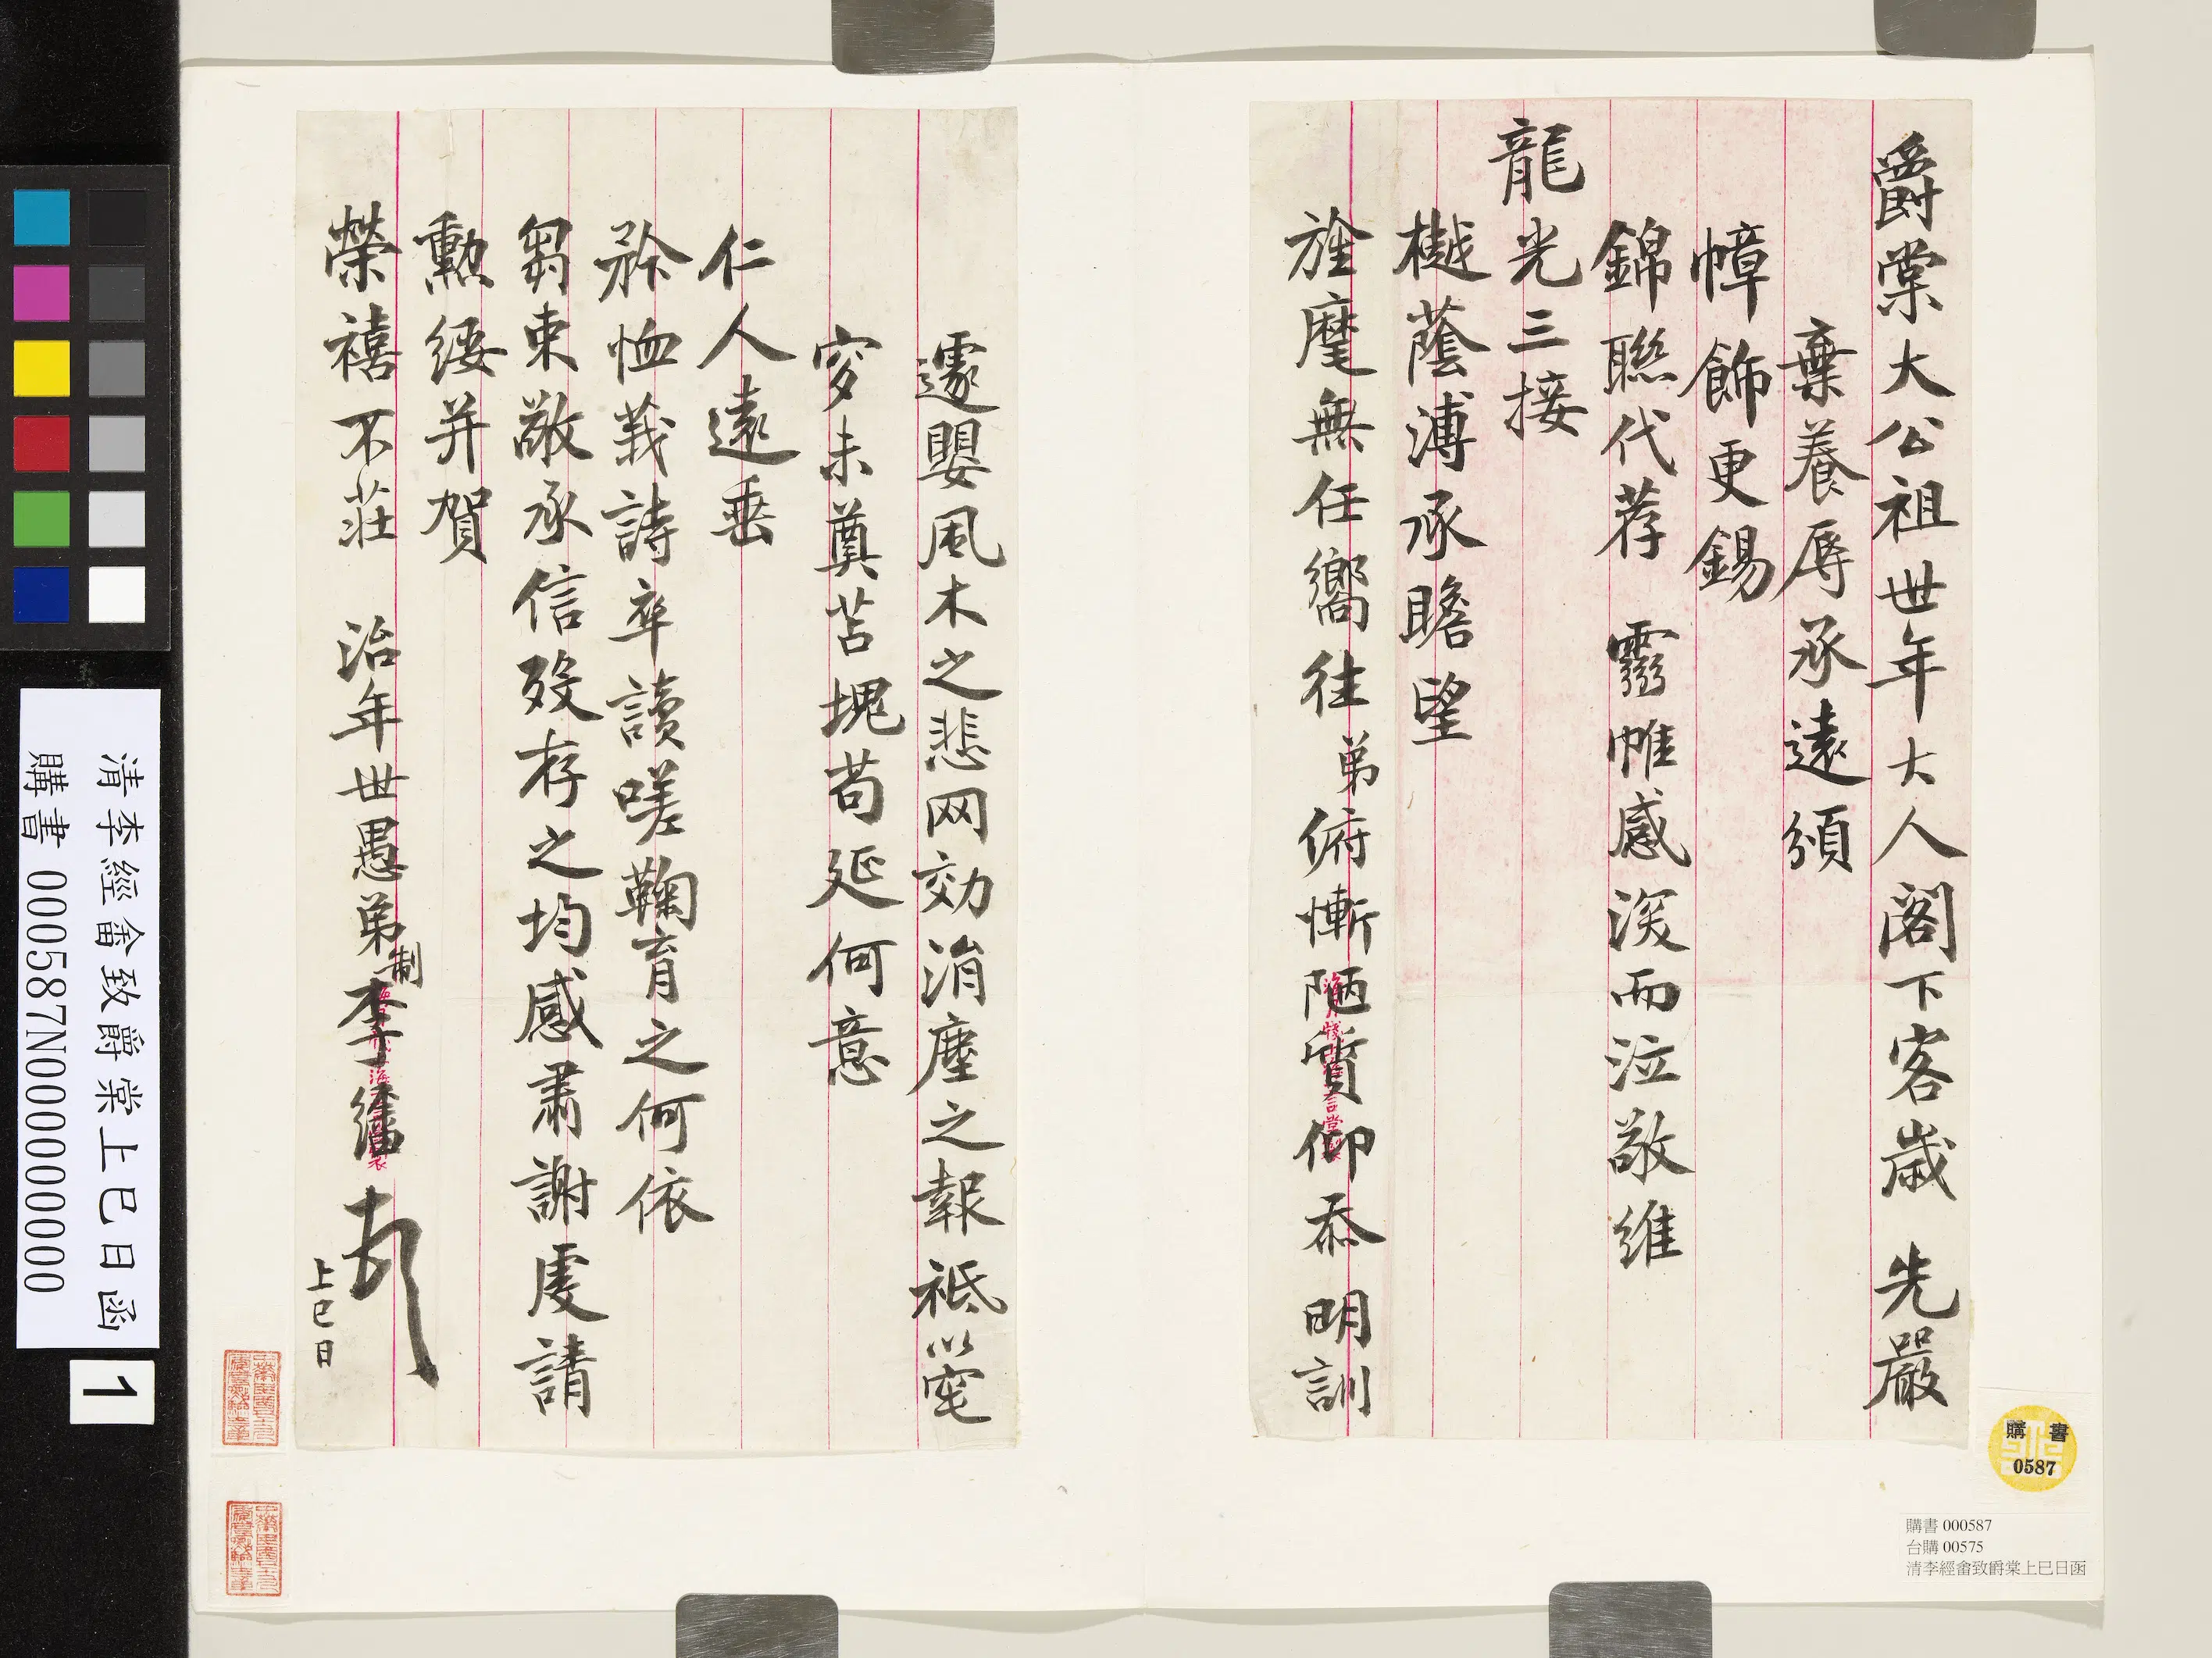 爵棠大公祖世年大人閣下客歲 先嚴
棄養辱承遠頒
幛飾更錫
錦聯代荐 靈帷感深而泣敬維
龍光三接
樾蔭溥承瞻望
旌麾無任嚮往弟俯慚陋質仰忝 明訓
遽嬰風木之悲网効涓塵之報祗以窀
穸未奠苫塊苟延何意
仁人遠垂
矜恤莪詩卒讀嗟鞠育之何依
芻束敬承信歿存之均感肅謝虔請
勳綏并賀
榮禧不莊 治年世愚弟制李經畬
上巳日
清李經畬致爵棠上巳日函
購書 000587N000000000
1
購書
0587
購書 000587
台購 00575
清李經畬致爵棠上巳日函